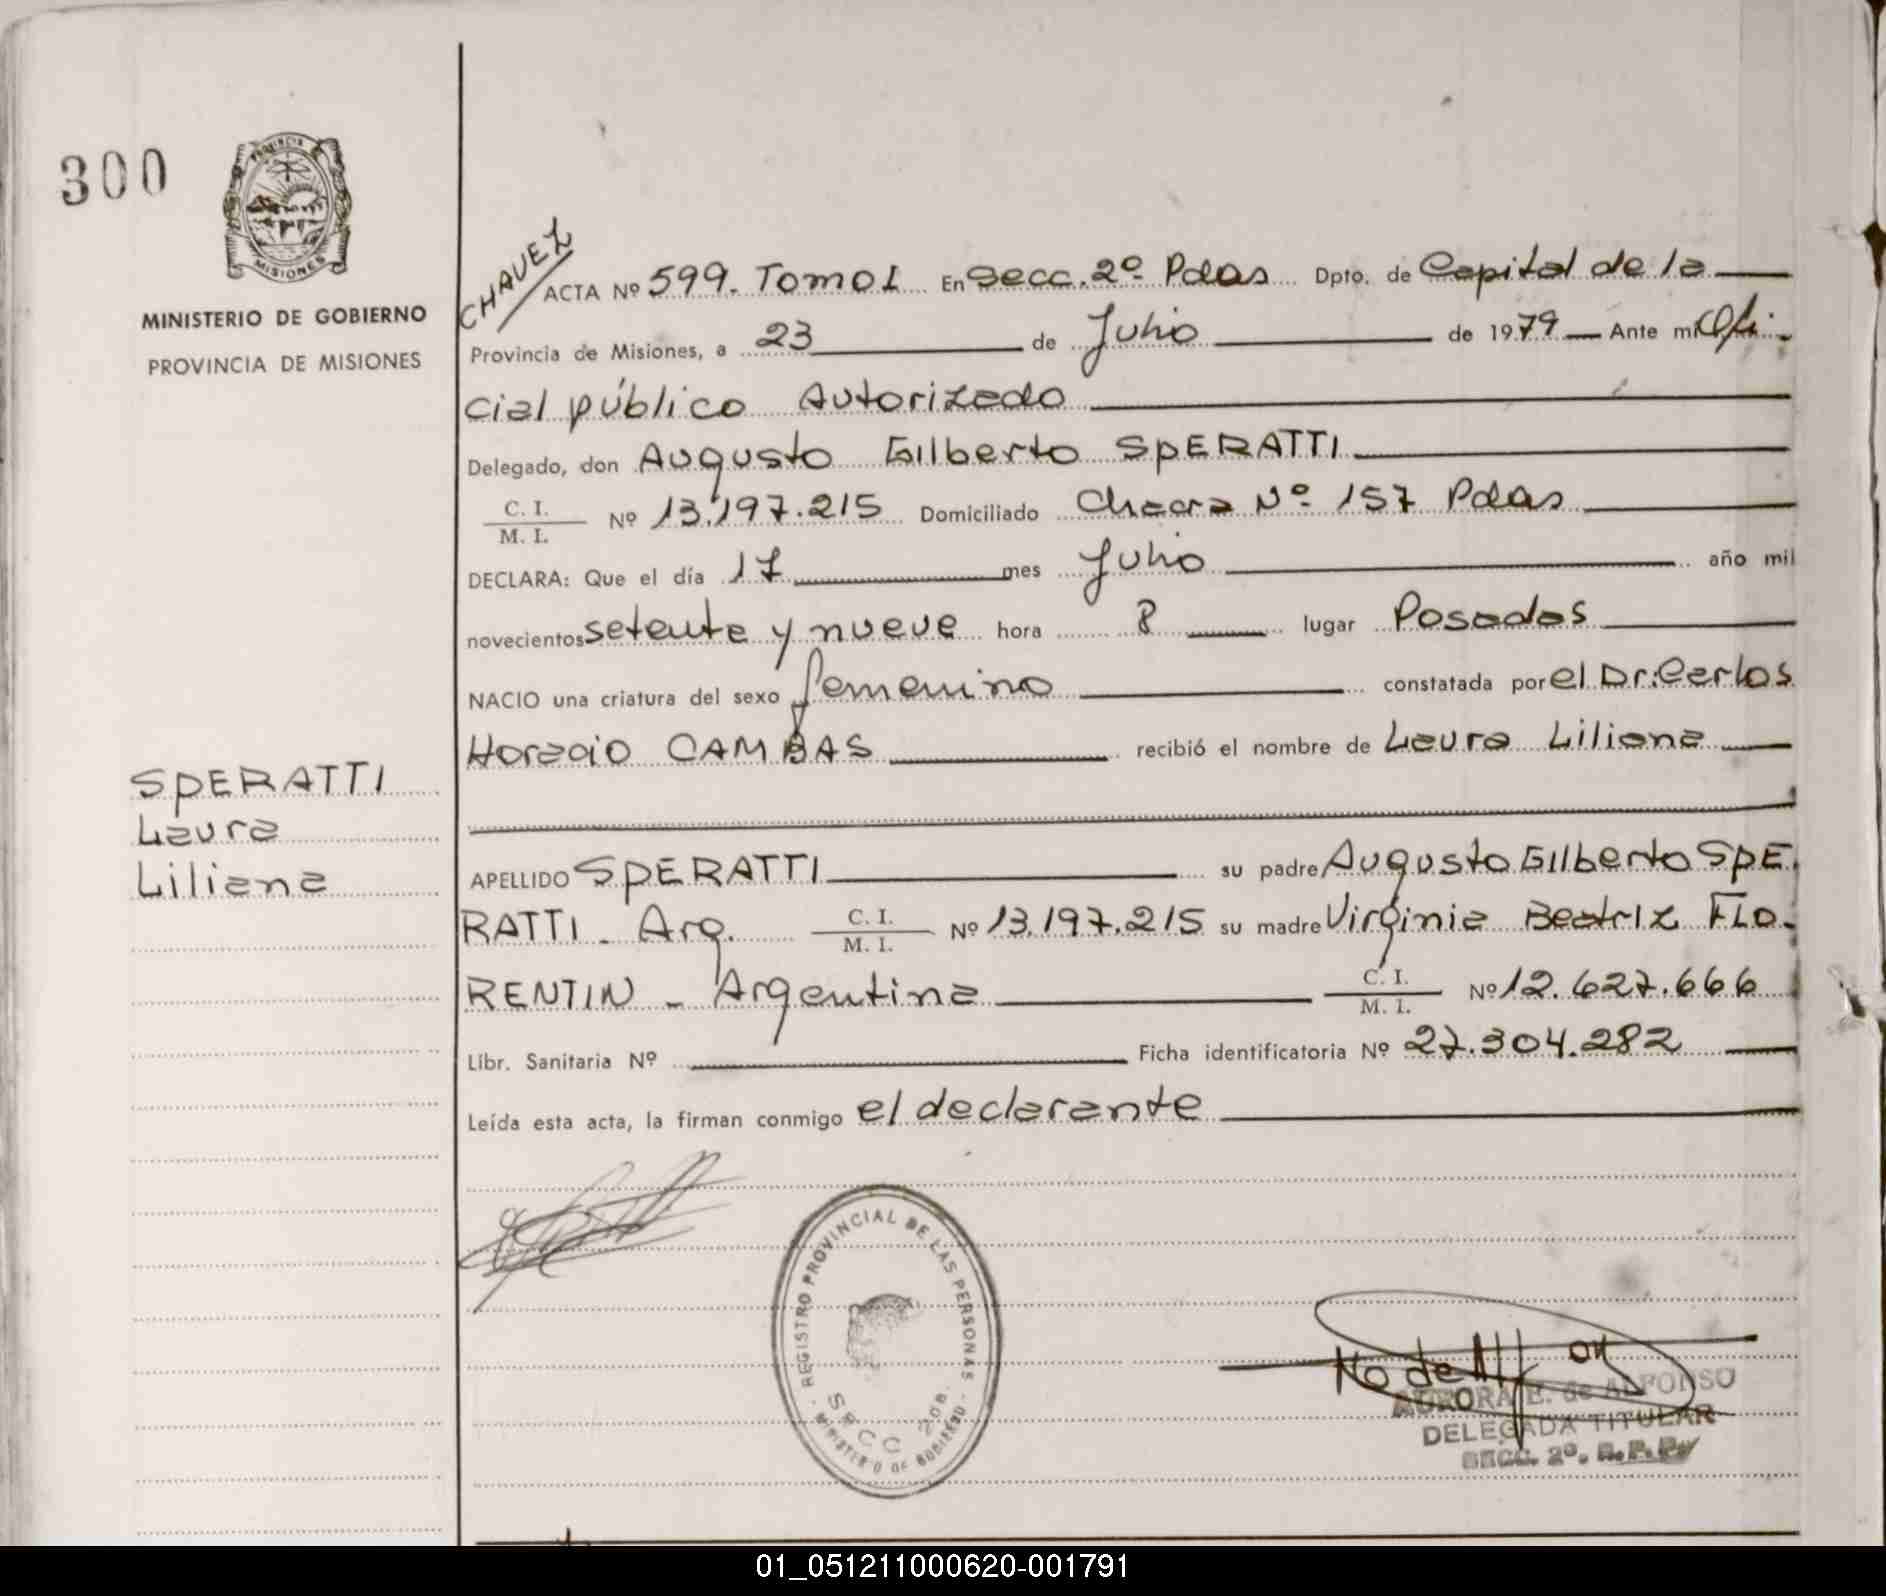 300
PROVINCIA
MISIONES
MINISTERIO DE GOBIERNO
PROVINCIA DE MISIONES
SPERATTI
Laura
Liliana
CHAVEZ
ACTA Nº 599. Tomo I En Secc. 2º Pdas Dpto. de Capital de la
Provincia de Misiones, a 23 de Julio de 1979 Ante mi Ofi-
cial público Autorizado
Delegado, don Augusto Gilberto SPERATTI
C. I.
M. I. Nº 13.197.215 Domiciliado Chacra Nº 157 Pdas
DECLARA: Que el día 17 mes Julio año mil
novecientos setenta y nueve hora 8 lugar Posadas
NACIO una criatura del sexo femenino constatada por el Dr. Carlos
Horacio CAMBAS recibió el nombre de Laura Liliana
APELLIDO SPERATTI su padre Augusto Gilberto SPE-
RATTI - Arg. C. I.
M. I. Nº 13.197.215 su madre Virginia Beatriz FLO-
RENTIN - Argentina C. I.
M. I. Nº 12.627.666
Libr. Sanitaria Nº Ficha identificatoria Nº 27.304.282
Leída esta acta, la firman conmigo el declarante
REGISTRO PROVINCIAL DE LAS PERSONAS
SECC 2da.
MINISTERIO DE GOBIERNO
AURORA E. de ALFONSO
DELEGADA TITULAR
SECC. 2º. R. P. P.
01_051211000620-001791